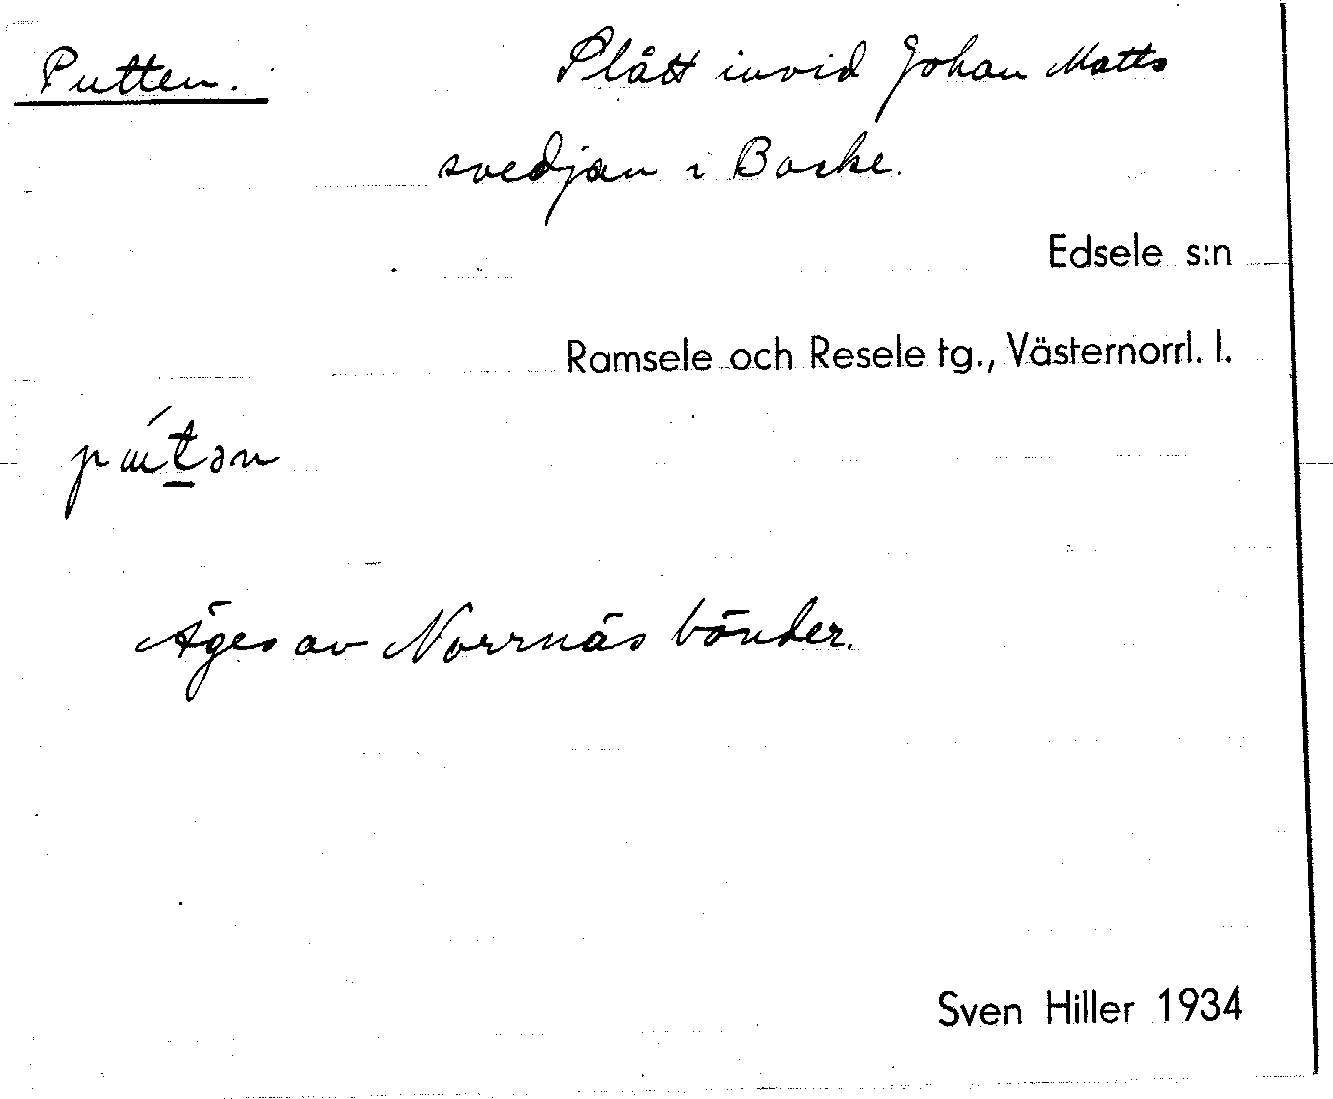 Putten. Plätt invid Johan Matts
svedjan i Backe.
Edsele s:n
Ramsele och Resele tg., Västernorrl. l.
pútən
Äges av Norrnäs bönder.
Sven Hiller 1934